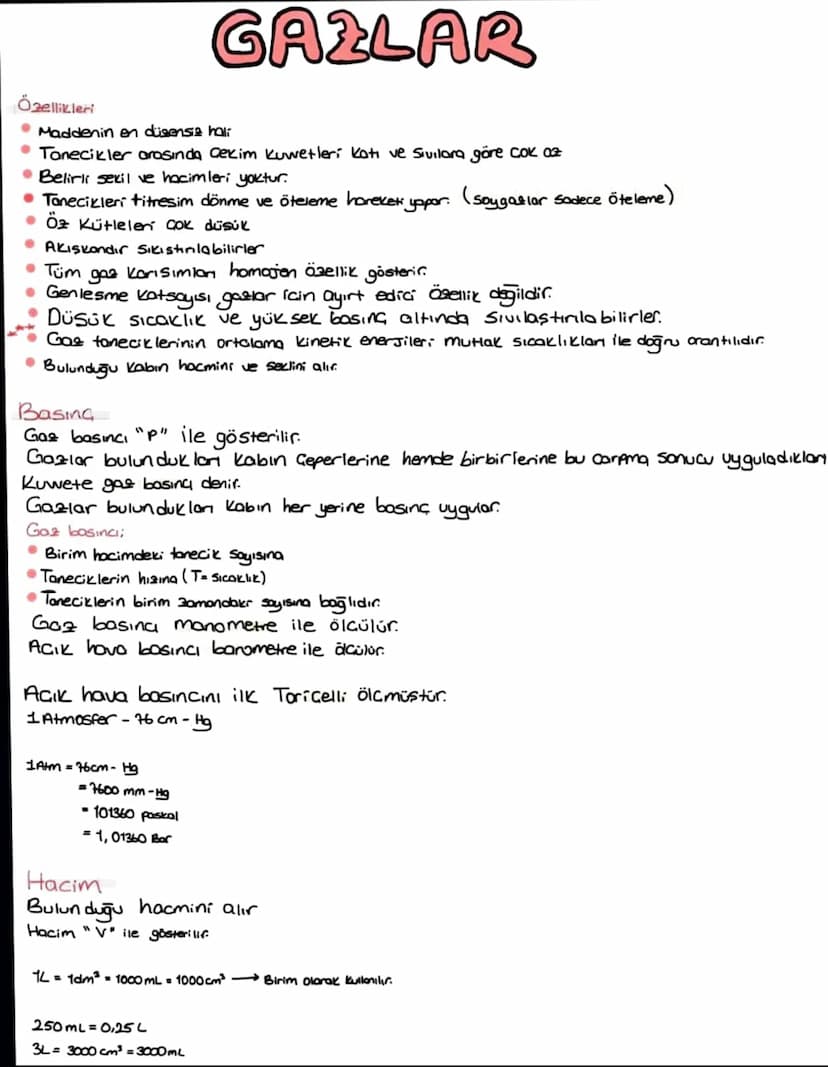 GAZLAR
Özellikleri
• Maddenin en düzensiz hali
• Tanecikler arasında çekim kuvvetleri katı ve sıvılara göre çok az
• Belirli şekil ve hacimleri yoktur.
• Tanecikleri titresim dönme ve öteleme hareketi yapar. (soygazlar sadece öteleme)
• Öz Kütleleri çok düsük
• Akıskandır sıkıstırılabilirler
• Tüm gaz karısımları homojen özellik gösterir.
• Genlesme katsayısı gazlar için ayırt edici özellik değildir.
• Düsük sıcaklık ve yüksek basınç altında sıvılaştırılabilirler.
• Gaz taneciklerinin ortalama kinetik enerjileri mutlak sıcaklıkları ile doğru orantılıdır.
• Bulunduğu kabın hacmini ve seklini alır.
Basınç
Gaz basıncı "P" ile gösterilir.
Gazlar bulundukları kabın çeperlerine hemde birbirlerine bu carpma sonucu uyguladıkları
Kuvvete gaz basıncı denir.
Gazlar bulundukları kabın her yerine basınç uygular.
Gaz basıncı;
• Birim hacimdeki tanecik sayısına
• Taneciklerin hızına (T= sıcaklık)
• Taneciklerin birim zamandaki sayısına bağlıdır.
Gaz basıncı manometre ile ölcülür.
Acık hava basıncı barometre ile ölcülür.
Acık hava basıncını ilk Toricelli ölcmüstür.
1 Atmosfer - 76 cm - Hg
1Atm = 76cm - Hg
= 7600 mm -Hg
= 101360 paskal
= 1,01360 Bar
Hacim
Bulunduğu hacmini alır
Hacim "V" ile gösterilir.
1L = 1dm³ = 1000mL = 1000cm³ → Birim olarak kullanılır.
250mL = 0,25L
3L = 3000cm³ = 3000mL